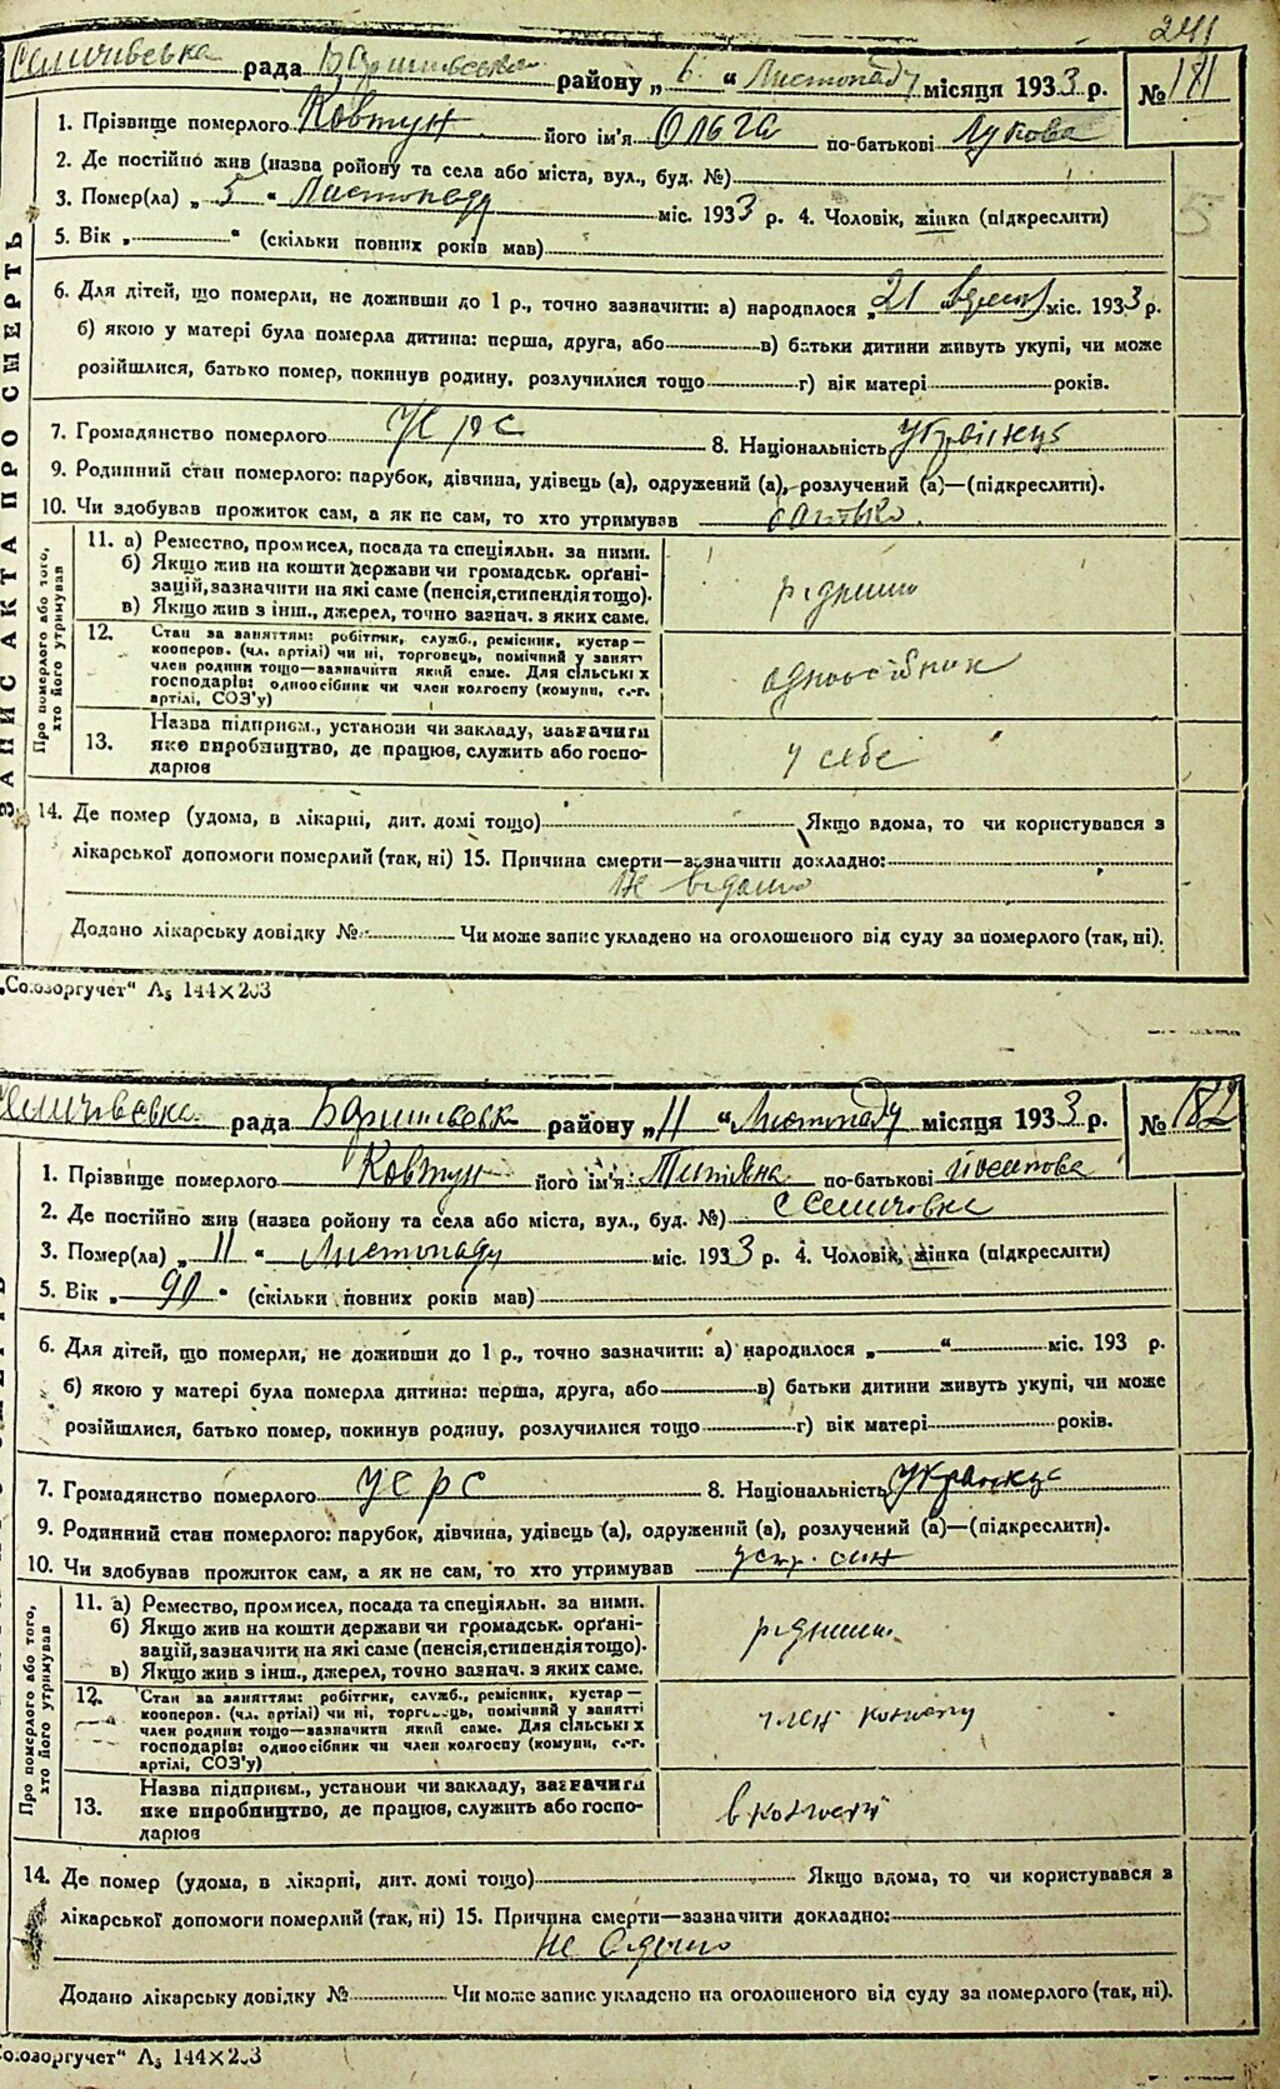 241
Селичівська рада Баришівська району „ 6 “ Листопаду місяця 1933 р. № 181
ЗАПИС АКТА ПРО СМЕРТЬ
1. Прізвище померлого Ковтун його ім'я Ольга по-батькові Лукова
2. Де постійно жив (назва ройону та села або міста, вул., буд. №)
3. Помер(ла) „ 5 “ Листопаду міс. 1933 р. 4. Чоловік, жінка (підкреслити)
5
5. Вік „ “ (скільки повних років мав)
6. Для дітей, що померли, не доживши до 1 р., точно зазначити: а) народилося „ 21 міс. 1933 р.
б) якою у матері була померла дитина: перша, друга, або в) батьки дитини живуть укупі, чи може
розійшлися, батько помер, покинув родину, розлучилися тощо г) вік матері років.
7. Громадянство померлого УСРС 8. Національність
9. Родинний стан померлого: парубок, дівчина, удівець (а), одружений (а), розлучений (а)—(підкреслити).
10. Чи здобував прожиток сам, а як не сам, то хто утримував батько
Про померлого або того, хто його утримував
11. а) Ремество, промисел, посада та спеціяльн. за ними.
б) Якщо жив на кошти держави чи громадськ. орґані-
зацій, зазначити на які саме (пенсія, стипендія тощо).
в) Якщо жив з інш., джерел, точно зазнач. з яких саме.
12. Стан за заняттям: робітник, служб., ремісник, кустар—
кооперов. (чл. артілі) чи ні, торговець, помічний у занятт
член родини тощо—зазначити який саме. Для сільських
господарів: одноосібник чи член колгоспу (комуни, с.-г.
артілі, СОЗ'у)
одноосібник
Назва підприєм., установи чи закладу, зазначити
13. яке виробництво, де працює, служить або госпо-
дарює
у себе
14. Де помер (удома, в лікарні, дит. домі тощо) Якщо вдома, то чи користувався з
лікарської допомоги померлий (так, ні) 15. Причина смерти—зазначити докладно:
не відомо
Додано лікарську довідку № Чи може запис укладено на оголошеного від суду за померлого (так, ні).
„Союзоргучет“ А₅ 144×203
Селичівська рада Баришівська району „ 11 “ Листопаду місяця 1933 р. № 182
1. Прізвище померлого Ковтун його ім'я Титяна по-батькові Йосипова
2. Де постійно жив (назва ройону та села або міста, вул., буд. №) с Селичівка
3. Помер(ла) „ 11 “ Листопаду міс. 1933 р. 4. Чоловік, жінка (підкреслити)
5. Вік „ 90 “ (скільки повних років мав)
6. Для дітей, що померли, не доживши до 1 р., точно зазначити: а) народилося „ “ міс. 193 р.
б) якою у матері була померла дитина: перша, друга, або в) батьки дитини живуть укупі, чи може
розійшлися, батько помер, покинув родину, розлучилися тощо г) вік матері років.
7. Громадянство померлого УСРС 8. Національність
9. Родинний стан померлого: парубок, дівчина, удівець (а), одружений (а), розлучений (а)—(підкреслити).
10. Чи здобував прожиток сам, а як не сам, то хто утримував син
Про померлого або того, хто його утримував
11. а) Ремество, промисел, посада та спеціяльн. за ними.
б) Якщо жив на кошти держави чи громадськ. орґані-
зацій, зазначити на які саме (пенсія, стипендія тощо).
в) Якщо жив з інш., джерел, точно зазнач. з яких саме.
12. Стан за заняттям: робітник, служб., ремісник, кустар—
кооперов. (чл. артілі) чи ні, торговець, помічний у занятті
член родини тощо—зазначити який саме. Для сільських
господарів: одноосібник чи член колгоспу (комуни, с.-г.
артілі, СОЗ'у)
член колгоспу
Назва підприєм., установи чи закладу, зазначити
13. яке виробництво, де працює, служить або госпо-
дарює
в колгоспі
14. Де помер (удома, в лікарні, дит. домі тощо) Якщо вдома, то чи користувався з
лікарської допомоги померлий (так, ні) 15. Причина смерти—зазначити докладно:
не відомо
Додано лікарську довідку № Чи може запис укладено на оголошеного від суду за померлого (так, ні).
Союзоргучет“ А₅ 144×203